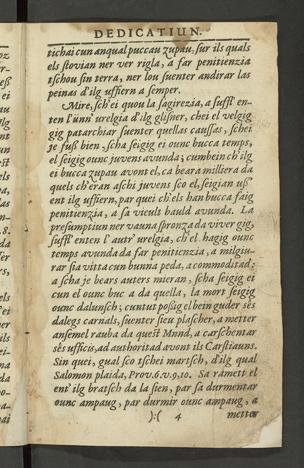 DEDICATIUN.
tichai cun anqual puccau zupau, sur ils quals
els stovian ner ver rigla, a far penitienzia
tschou sin terra, ner lou suenter andirar las
peinas d'ilg uffiern a semper.
Mire, sch'ei quou la sagirezia, a suffl' en-
ten l'ünn' urelgia d'ilg glisner, chei el velgig
gig patarchiar suenter quellas caussas, schei
je fuß bien, scha seigig ei ounc bucca temps,
el seigig ounc juvens avunda; cumbein ch'ilg
ei bucca zupau avont el, ca beara milliera da
quels ch'eran aschi juvens sco el, seigian uß
ent ilg uffiern, par quei ch'els han bucca faig
penitienzia, a sa vieult bauld avunda. La
presumptiun ner vauna spronza da viver gig,
suffl' enten l' autr' urelgia, ch'el hagig ounc
temps avunda da far penitienzia, a milgiu-
rar sia vitta cun bunna peda, a commoditad;
a scha je bears auters mieran, scha seigig ei
cun el ounc buc a da quella, la mort seigig
ounc dalunsch; cuntut possig el bein guder sês
dalegs carnals, suenter seu plascher, a metter
ansemel rauba da quest Mund, a carschentar
sês ufficis, ad authoritad avont ils Carstiauns.
Sin quei, gual sco tschei martsch, d'ilg qual
Salomon plaida, Prov. 6. v. 9. 10. Sa ramett el
ent' ilg bratsch da la sien, par sa durmentar
ounc ampaug, par durmir ounc ampaug, a
):( 4 metter